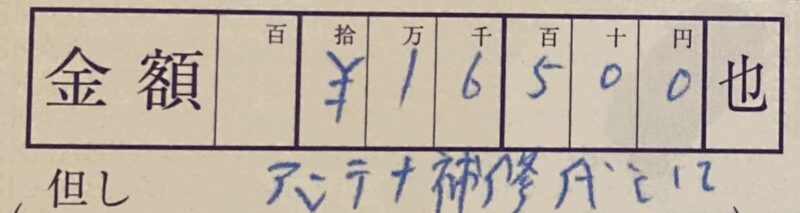 百 拾 万 千 百 十 円
金額 ¥16500 也
但し アンテナ補修代として